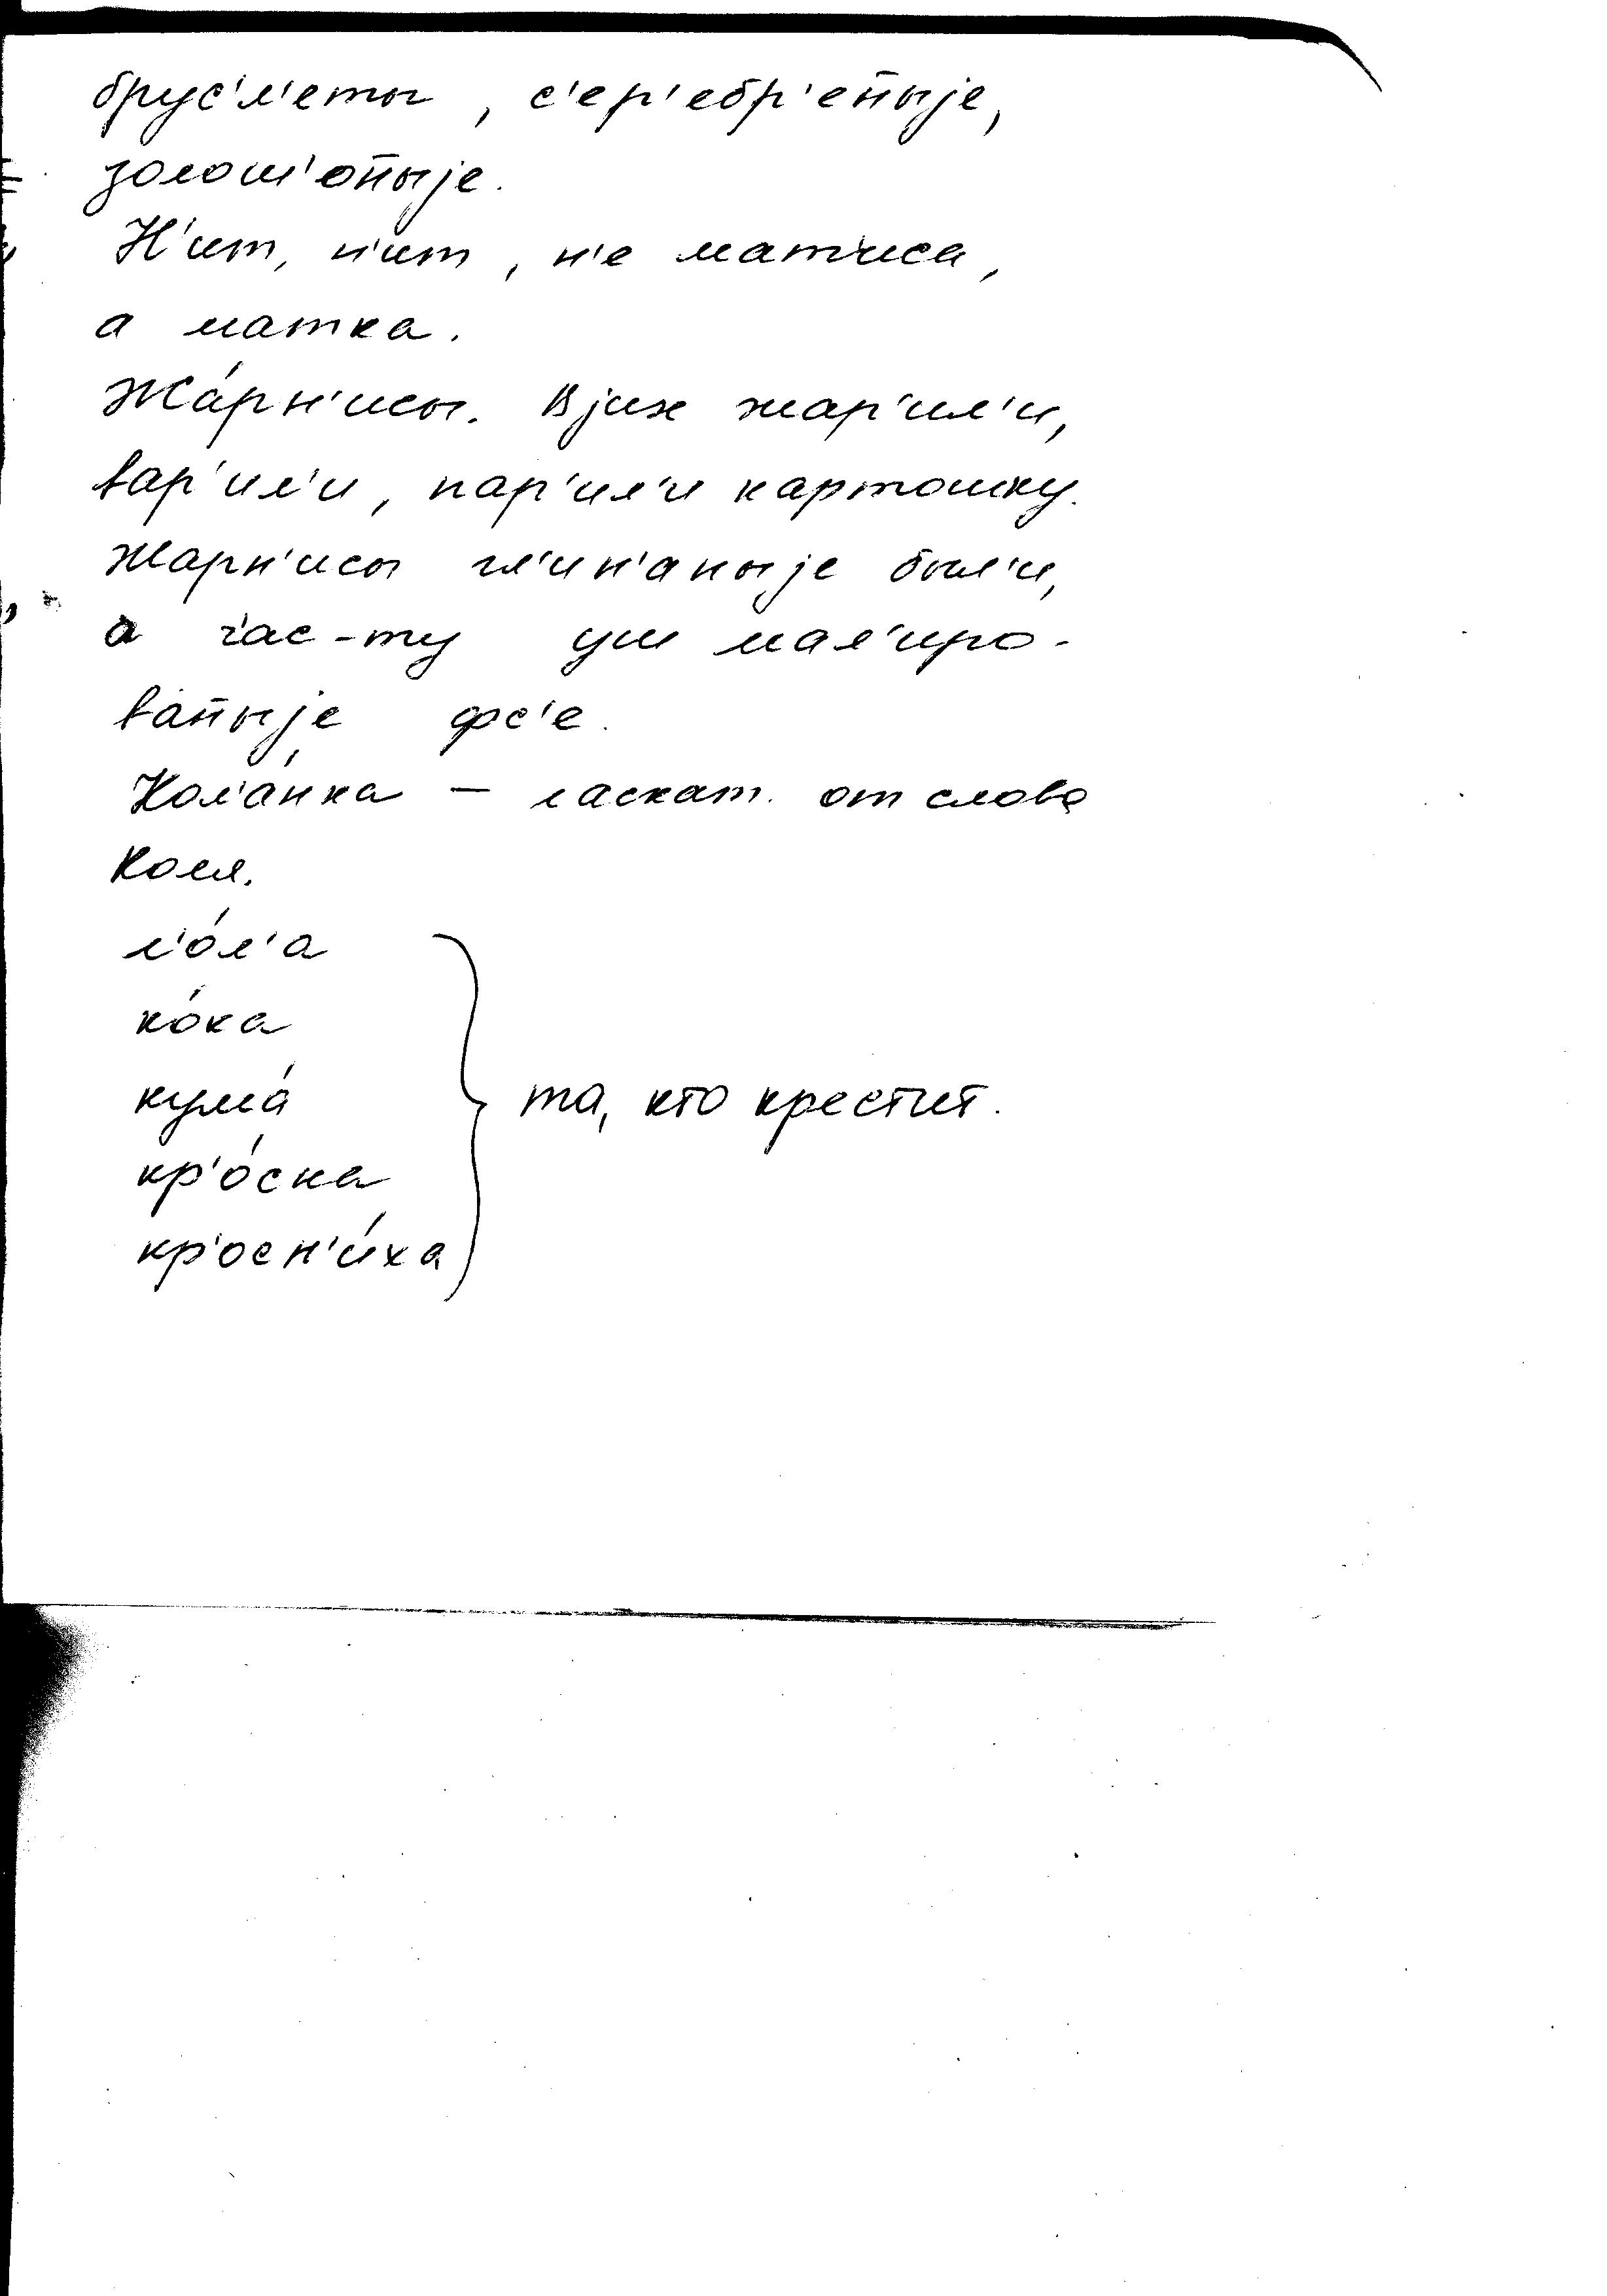 брус'л'еты, с'ер'ебр'ен̄ыjе,
золот'он̄ыjе.
Н'ит, н'ит, н'е матиса,
а матка.
Жа́рн'исы. В jих жар'ил'и,
вар'ил'и, пар'ил'и картошку.
Жарн'исы гл'ин'аныjе был'и,
а час-ту уш мал'иро-
ван̄ыjе фс'е.
Кол'а́нка – ласкат. от слова
Коля.
л'о́л'а
ко́ка
кума́
кр'о́сна
кр'осн'и́ха
та, кто крестит.